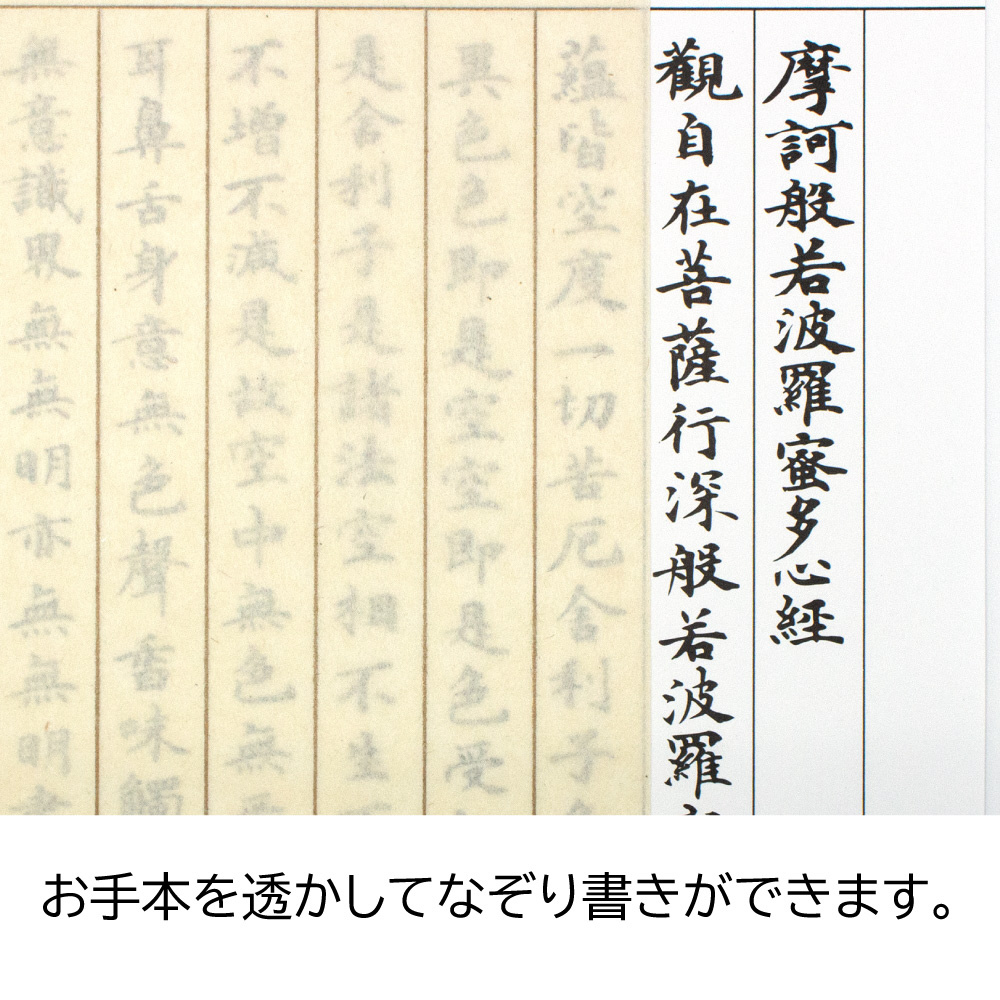 摩訶般若波羅蜜多心経
觀自在菩薩行深般若波羅
蘊皆空度一切苦厄舎利子
異色色即是空空即是色受
是舎利子是諸法空相不生
不増不減是故空中無色無
耳鼻舌身意無色聲香味觸
無意識界無無明亦無無明
お手本を透かしてなぞり書きができます。